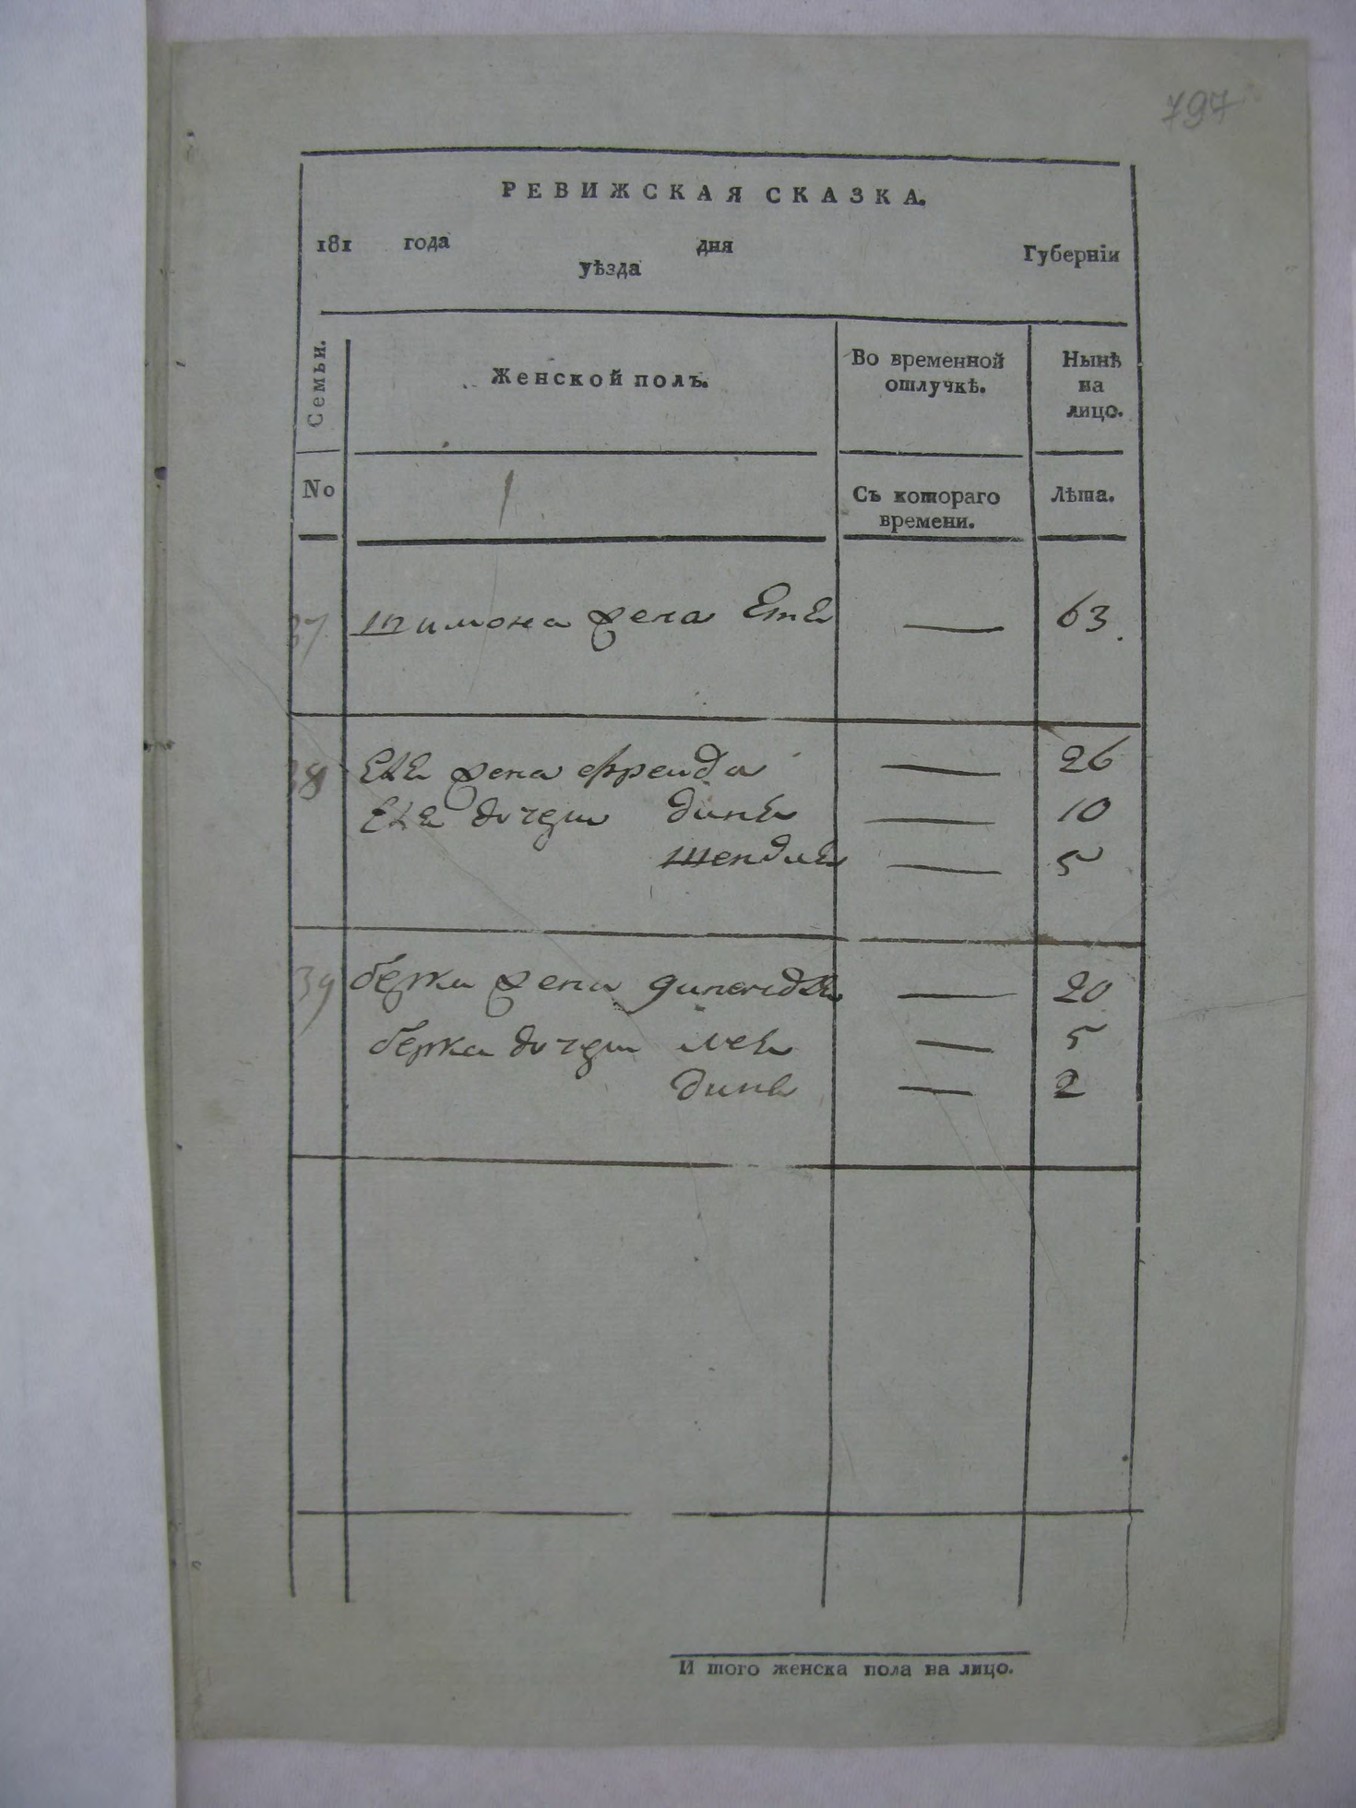 797
РЕВИЖСКАЯ СКАЗКА.
181 года дня Губерніи
уѣзда
Семьи. Женской полъ. Во временной отлучкѣ. Нынѣ на лицо.
No Съ котораго времени. Лѣта.
37 шимона жена Ете — 63.
38 Его жена фрейда — 26
Его дочери дине — 10
шендле — 5
39 берки жена — 20
берка дочери лее — 5
дине — 2
И того женска пола на лицо.